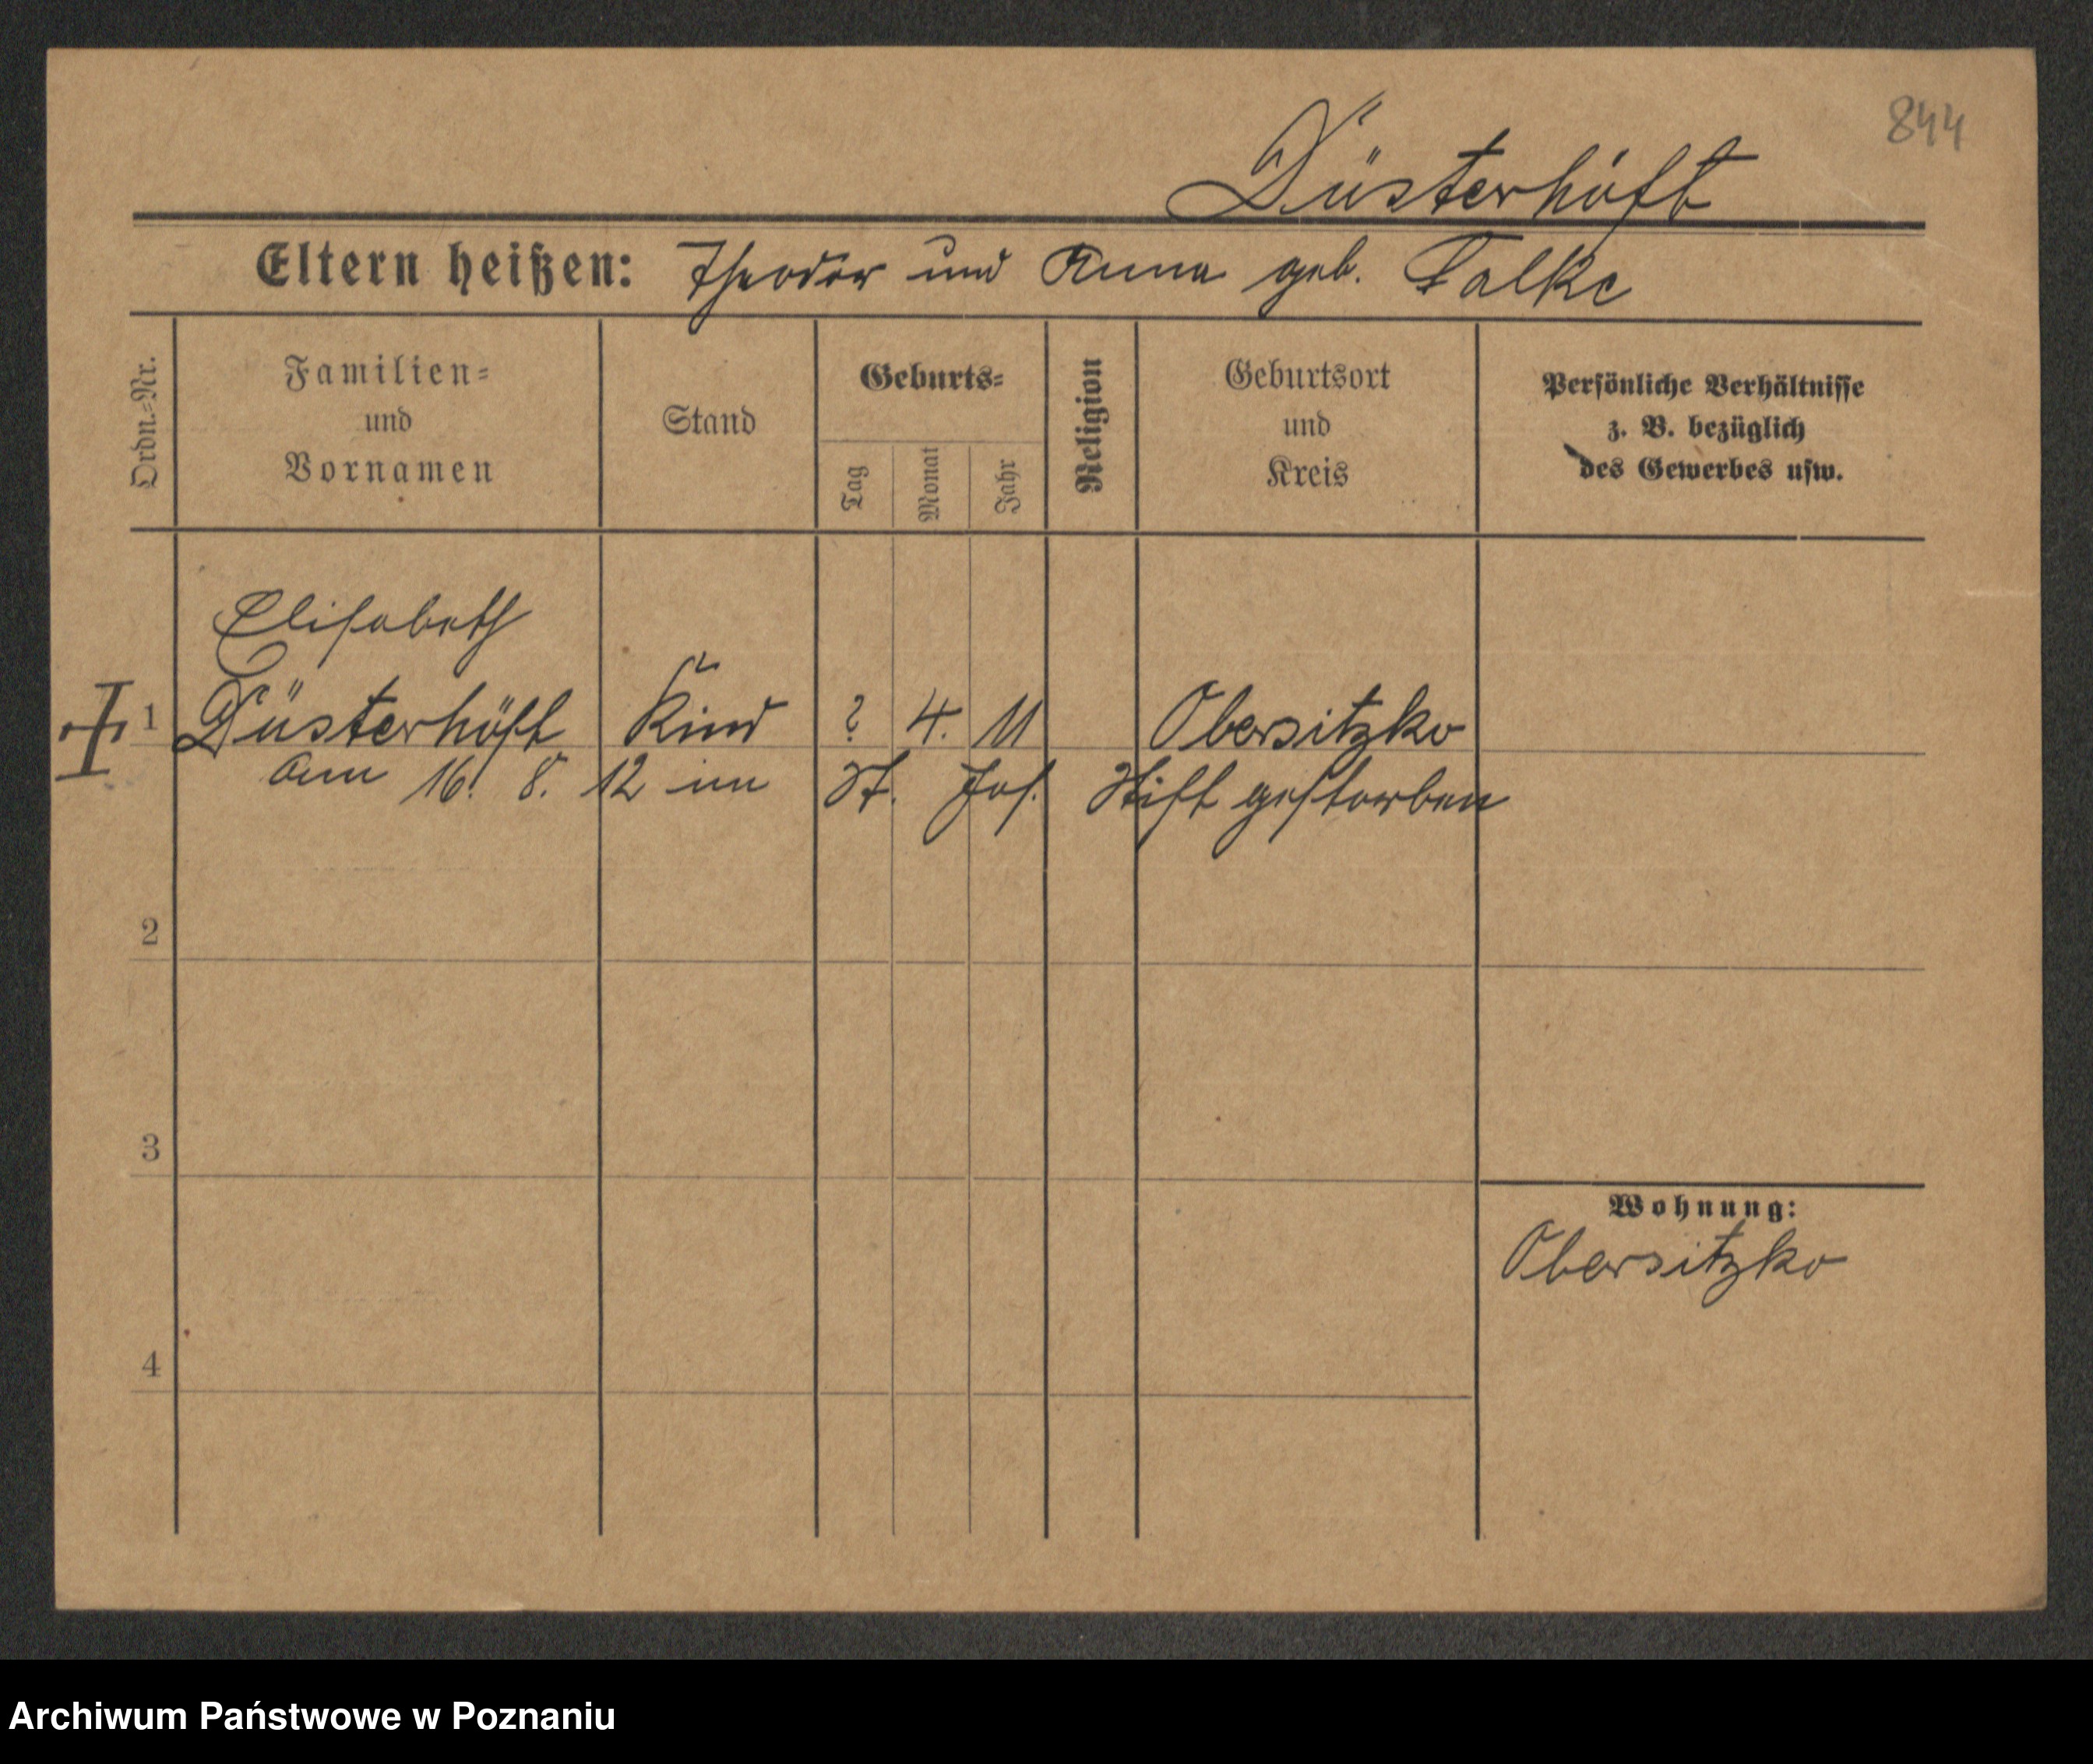 844
Düsterhöft
Eltern heißen: Theodor und Anna geb. Falke
Ordn.=Nr.
Familien=
und
Vornamen
Stand
Geburts=
Tag
Monat
Jahr
Religion
Geburtsort
und
Kreis
Persönliche Verhältnisse
z. B. bezüglich
des Gewerbes usw.
Elisabeth
1 Düsterhöft Kind ? 4. 11 Obersitzko
am 16. 8. 12 im St. Jos. Stift gestorben
2
3
Wohnung:
Obersitzko
4
Archiwum Państwowe w Poznaniu